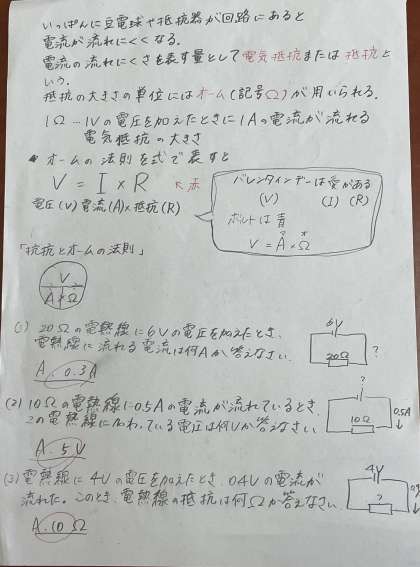 いっぱんに豆電球や抵抗器が回路にあると
電流が流れにくくなる.
電流の流れにくさを表す量として電気抵抗または抵抗と
いう.
抵抗の大きさの単位にはオーム(記号Ω)が用いられる.
1Ω…1Vの電圧を加えたときに1Aの電流が流れる
電気抵抗の大きさ
オームの法則を式で表すと
V = I × R
赤
電圧(V) 電流(A)×抵抗(R)
バレンタインデーは愛がある
(V) (I) (R)
ボルトは青
V = A × Ω
「抗抗とオームの法則」
V
A × Ω
(1) 20Ωの電熱線に6Vの電圧を加えたとき、
電熱線に流れる電流は何Aか答えなさい.
A. 0.3A
6V
20Ω
?
(2) 10Ωの電熱線に0.5Aの電流が流れているとき、
この電熱線に加わっている電圧は何Vか答えなさい
A. 5V
?
10Ω
0.5A
(3) 電熱線に4Vの電圧を加えたとき、0.4Vの電流が
流れた。このとき、電熱線の抵抗は何Ωか答えなさい.
A. 10Ω
4V
?